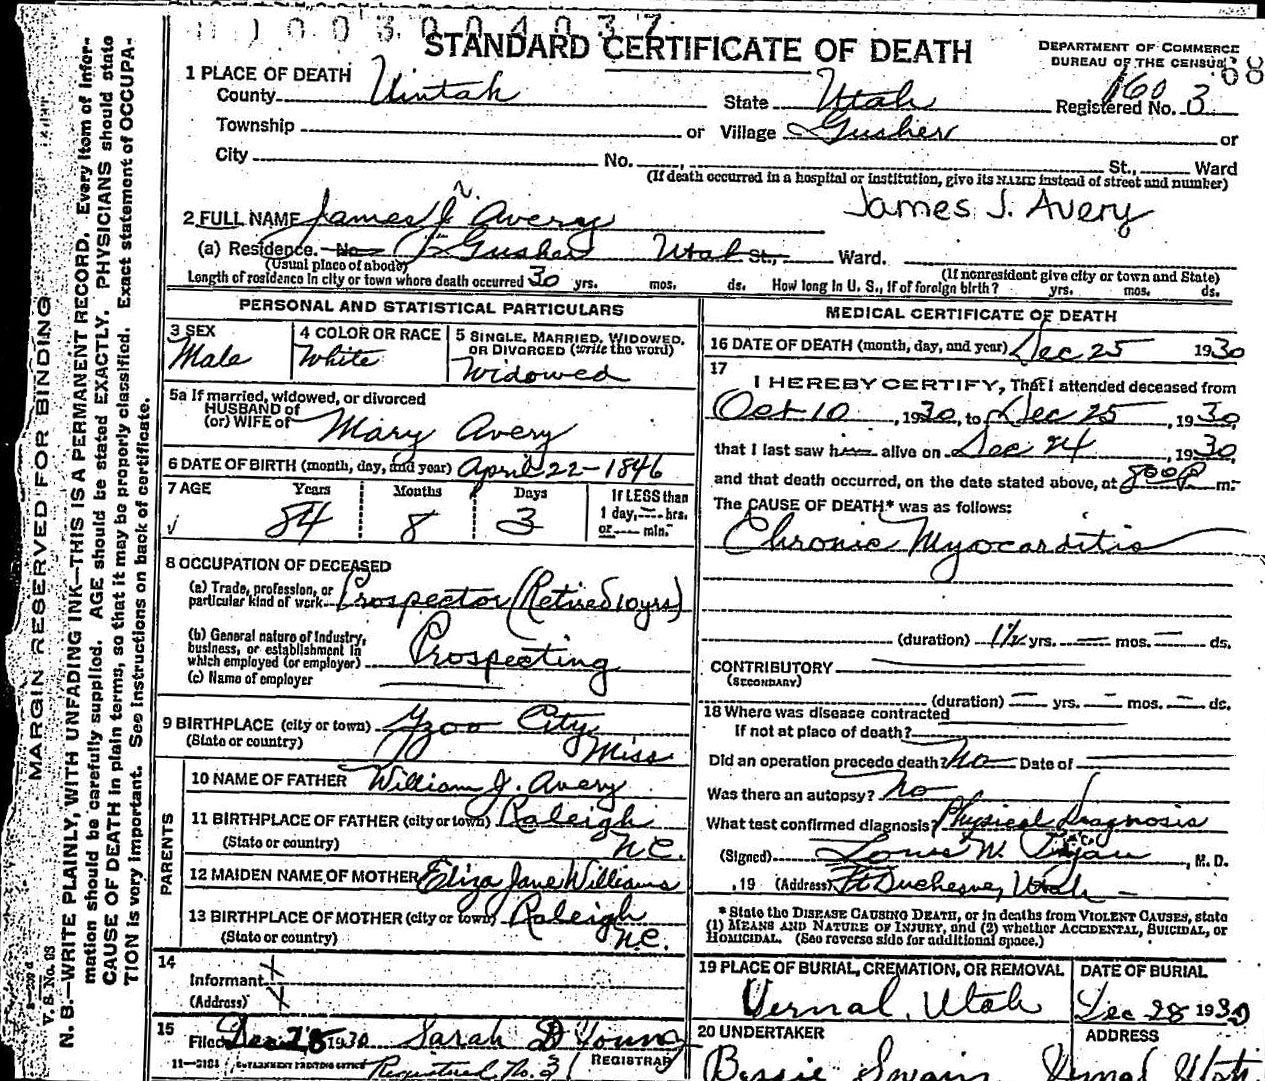 STANDARD CERTIFICATE OF DEATH
DEPARTMENT OF COMMERCE
BUREAU OF THE CENSUS
1 PLACE OF DEATH
County Uintah State Utah Registered No. 3
160
68
Township or Village Gusher or
City No. , St., Ward
(If death occurred in a hospital or institution, give its NAME instead of street and number)
James J. Avery
2 FULL NAME James J. Avery
(a) Residence. No. Gusher Utah St., Ward.
(Usual place of abode) (If nonresident give city or town and State)
Length of residence in city or town where death occurred 30 yrs. mos. ds. How long in U. S., if of foreign birth? yrs. mos. ds.
PERSONAL AND STATISTICAL PARTICULARS
3 SEX Male
4 COLOR OR RACE White
5 SINGLE, MARRIED, WIDOWED, OR DIVORCED (write the word)
Widowed
5a If married, widowed, or divorced
HUSBAND of
(or) WIFE of Mary Avery
6 DATE OF BIRTH (month, day, and year) April 22-1846
7 AGE Years Months Days If LESS than
84 8 3 1 day, hrs.
or min.
8 OCCUPATION OF DECEASED
(a) Trade, profession, or
particular kind of work Prospector (Retired 10 yrs)
(b) General nature of Industry,
business, or establishment in
which employed (or employer) Prospecting
(c) Name of employer
9 BIRTHPLACE (city or town) Yzoo City
(State or country) Miss
PARENTS
10 NAME OF FATHER William J. Avery
11 BIRTHPLACE OF FATHER (city or town) Raleigh
(State or country) N.C.
12 MAIDEN NAME OF MOTHER Eliza Jane Williams
13 BIRTHPLACE OF MOTHER (city or town) Raleigh
(State or country) N.C.
14
Informant X
(Address) X
15
Filed Dec 28 1930 Sarah D Young
REGISTRAR
11-3184 GOVERNMENT PRINTING OFFICE Registered No. 3
MEDICAL CERTIFICATE OF DEATH
16 DATE OF DEATH (month, day, and year) Dec 25 1930
17
I HEREBY CERTIFY, That I attended deceased from
Oct 10, 1930, to Dec 25, 1930,
that I last saw h alive on Dec 24, 1930,
and that death occurred, on the date stated above, at 8:00 P m.
The CAUSE OF DEATH* was as follows:
Chronic Myocarditis
(duration) 1½ yrs. mos. ds.
CONTRIBUTORY
(SECONDARY)
(duration) yrs. mos. ds.
18 Where was disease contracted
If not at place of death?
Did an operation precede death? No Date of
Was there an autopsy? No
What test confirmed diagnosis? Physical Diagnosis
(Signed) Louis W. , M. D.
, 19 (Address) Ft Duchesne, Utah
* State the DISEASE CAUSING DEATH, or in deaths from VIOLENT CAUSES, state
(1) MEANS AND NATURE OF INJURY, and (2) whether ACCIDENTAL, SUICIDAL, or
HOMICIDAL. (See reverse side for additional space.)
19 PLACE OF BURIAL, CREMATION, OR REMOVAL DATE OF BURIAL
Vernal, Utah Dec 28 1930
20 UNDERTAKER ADDRESS
Bessie Swain Vernal Utah
MARGIN RESERVED FOR BINDING
V. S. No. 98
N. B.—WRITE PLAINLY, WITH UNFADING INK—THIS IS A PERMANENT RECORD. Every item of infor-
mation should be carefully supplied. AGE should be stated EXACTLY. PHYSICIANS should state
CAUSE OF DEATH in plain terms, so that it may be properly classified. Exact statement of OCCUPA-
TION is very important. See instructions on back of certificate.